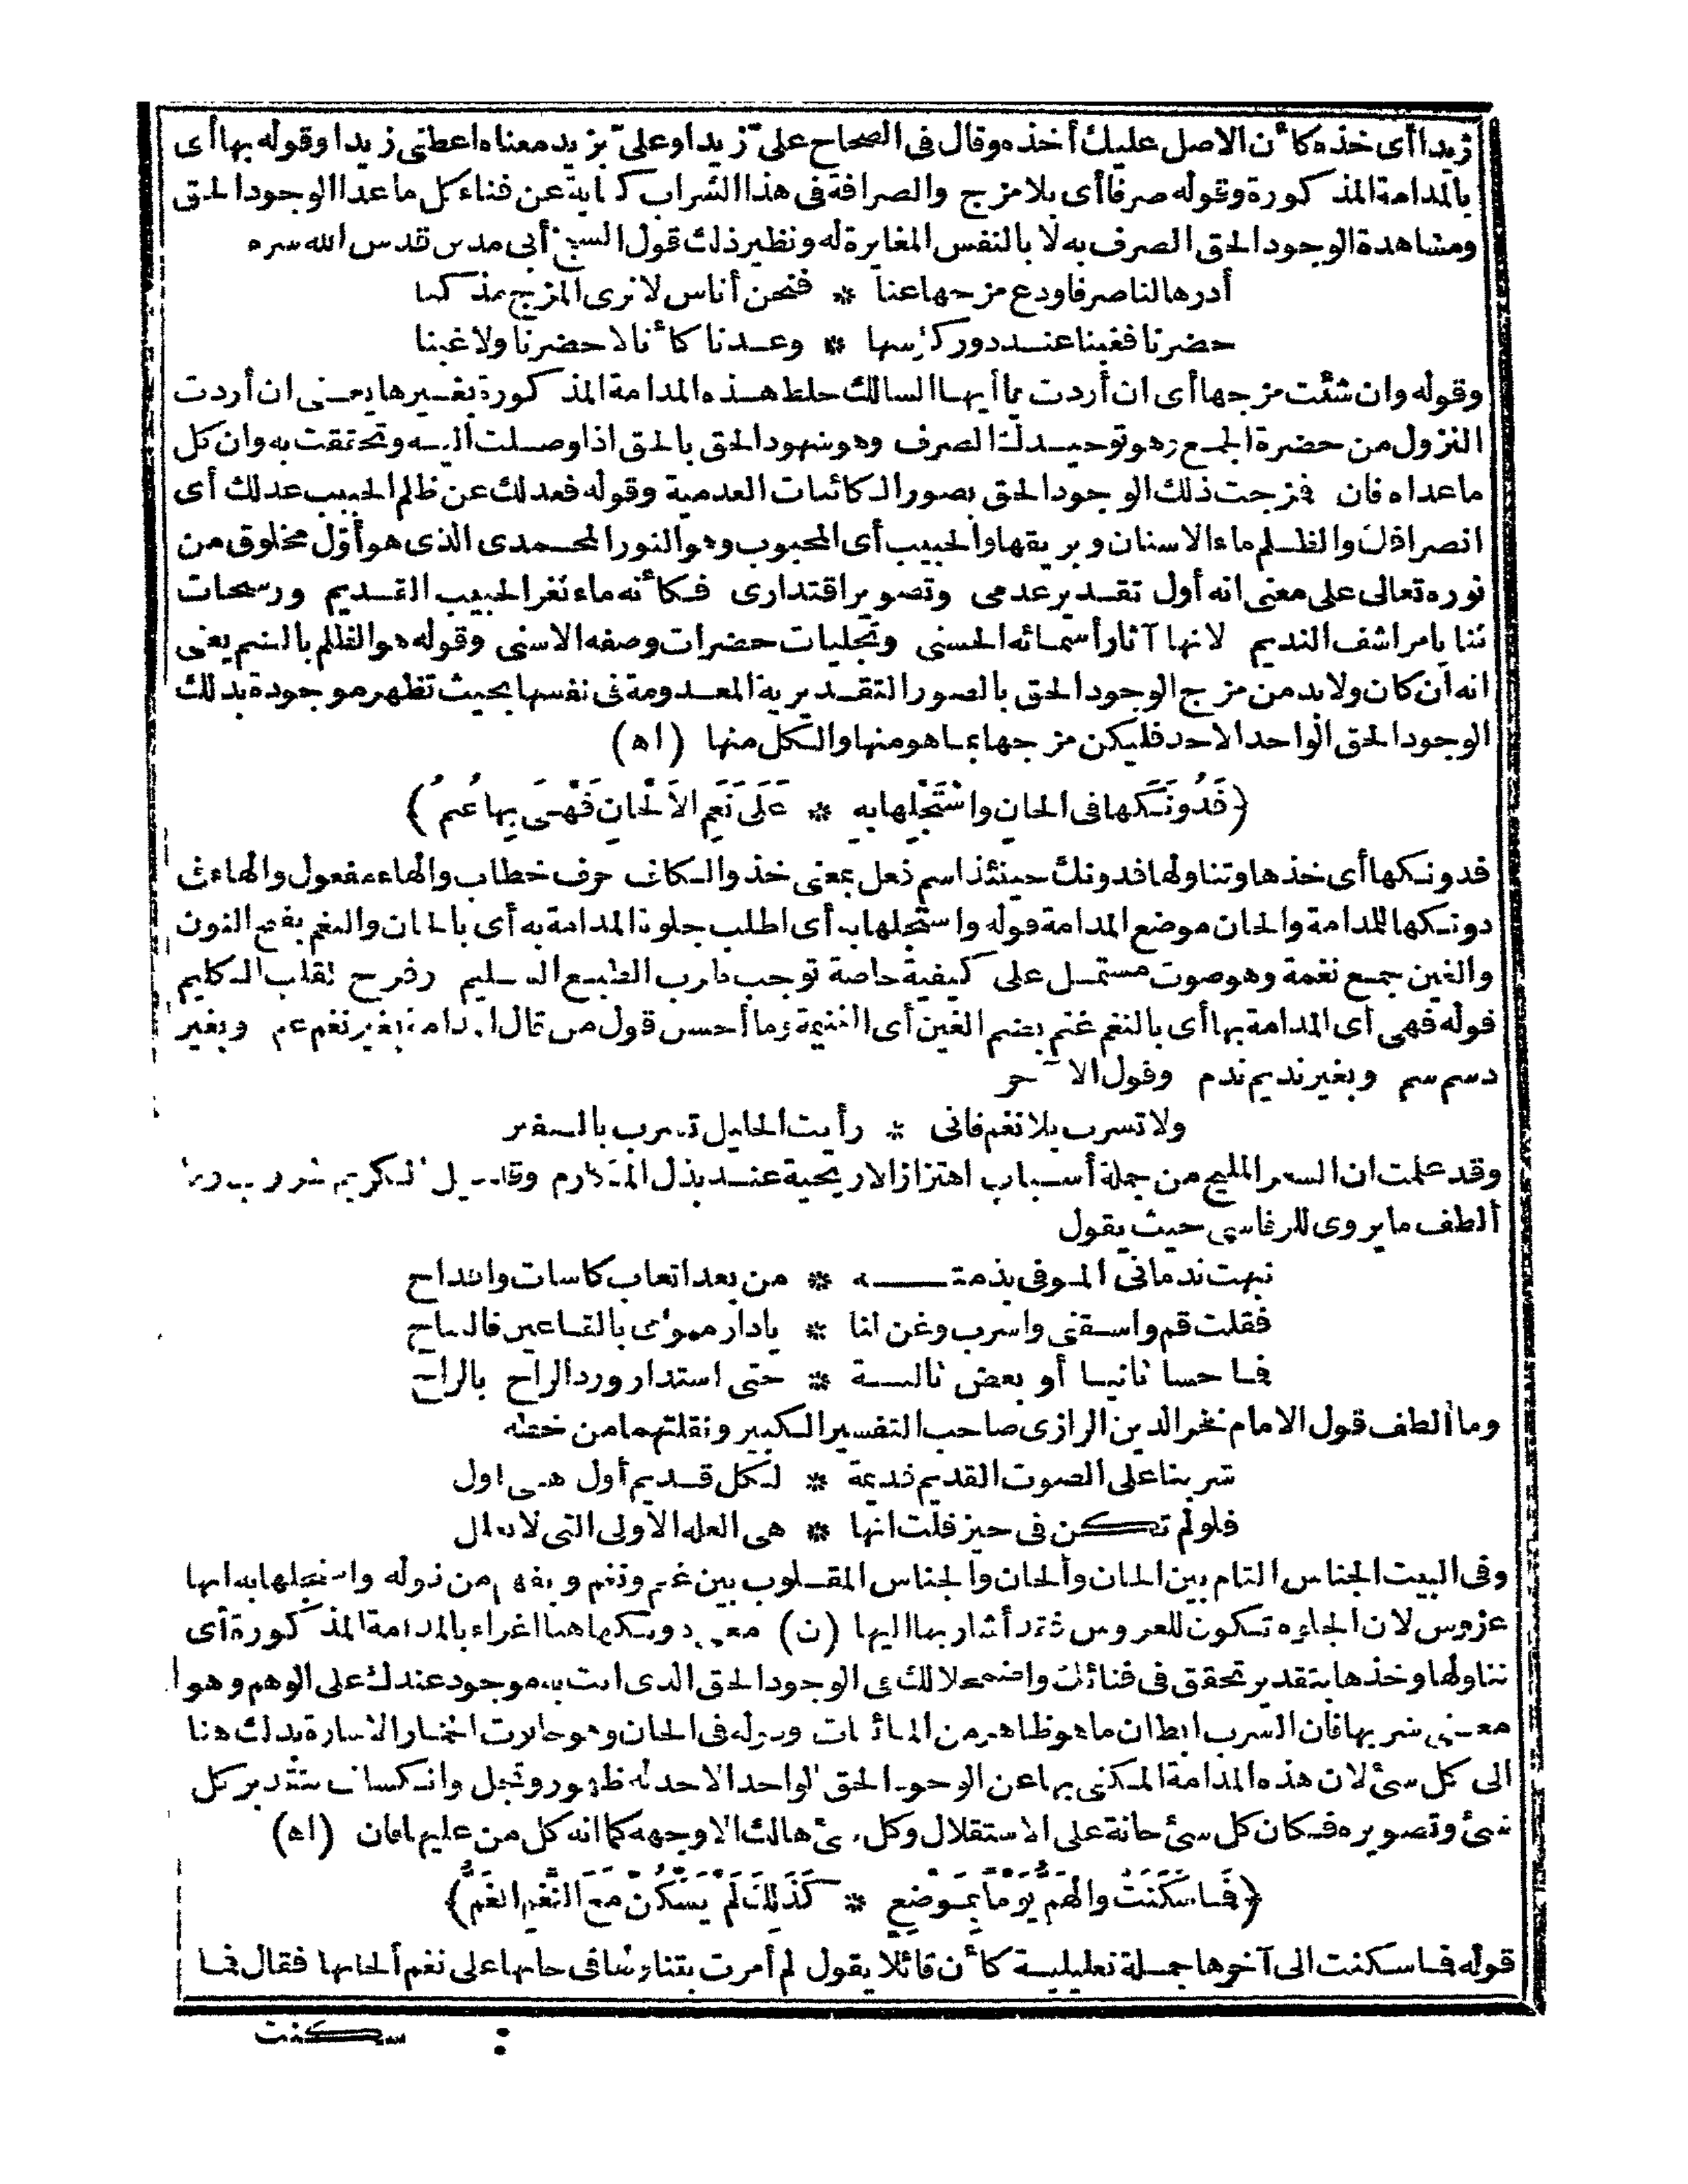 زيدا أى خذه كأن الاصل عليك أخذه وقال فى الصحاح علىّ زيدا وعلىّ بزيد معناه اعطنى زيدا وقوله بها أى
بالمدامة المذكورة وقوله صرفا أى بلا مزج والصرافة فى هذا الشراب كناية عن فناء كل ما عدا الوجود الحق
ومشاهدة الوجود الحق الصرف به لا بالنفس المغايرة له ونظير ذلك قول الشيخ أبى مدين قدس الله سره
أدرها لنا صرفا ودع مزجها عنا * فنحن أناس لا نرى المزج مذ كنا
حضرنا فغبنا عند دور كؤسها * وعدنا كأنا لا حضرنا ولا غبنا
وقوله وان شئت مزجها أى ان أردت يا أيها السالك خلط هذه المدامة المذكورة بغيرها يعنى ان أردت
النزول من حضرة الجمع وهو توحيدك الصرف وهو شهود الحق بالحق اذا وصلت اليه وتحققت به وان كل
ما عداه فان فمزجت ذلك الوجود الحق بصور الكائنات العدمية وقوله فعدلك عن ظلم الحبيب عدلك أى
انصرافك والظلم ماء الاسنان وبريقها والحبيب أى المحبوب وهو النور المحمدى الذى هو أوّل مخلوق من
نوره تعالى على معنى انه أول تقدير عدمى وتصوير اقتدارى فكأنه ماء ثغر الحبيب القديم ورشحات
ثنايا مراشف النديم لانها آثار أسمائه الحسنى وتجليات حضرات وصفه الاسنى وقوله هو الظلم بالضم يعنى
انه ان كان ولا بد من مزج الوجود الحق بالصور التقديرية المعدومة فى نفسها بحيث تظهر موجودة بذلك
الوجود الحق الواحد الاحد فليكن مزجها بما هو منها والكل منها (اه)
﴿فَدُونَكَها فى الحان واسْتَجْلِها بِهِ * عَلَى نَغَمِ الاَلْحانِ فَهْىَ بِها غُنْمُ﴾
فدونكها أى خذها وتناولها فدونك حينئذ اسم فعل بمعنى خذ والكاف حرف خطاب والهاء مفعول والهاء فى
دونكها للمدامة والحان موضع المدامة قوله واستجلها به أى اطلب جلوة المدامة به أى بالحان والنغم بفتح النون
والغين جمع نغمة وهو صوت مشتمل على كيفية خاصة توجب طرب الطبع السليم وفرح القلب الكليم
قوله فهى أى المدامة بها أى بالنغم غنم بضم الغين أى الغنيمة وما أحسن قول من قال المدامة بغير نغم غم وبغير
دسم سم وبغير نديم ندم وقول الآخر
ولا تشرب بلا نغم فانى * رأيت الخيل تشرب بالصفير
وقد علمت ان الشعر المليح من جملة أسباب اهتزاز الاريحية عند بذل المكارم وقد قيل الكريم طروب وما
ألطف ما يروى للرقاشى حيث يقول
نبهت ندمانى الموفى بذمته * من بعد اتعاب كاسات واقداح
فقلت قم واسقنى واشرب وغن لنا * يا دار مثواى بالقاعين فالساح
فما حسا ثانيا أو بعض ثالثة * حتى استدار ورد الراح بالراح
وما ألطف قول الامام فخر الدين الرازى صاحب التفسير الكبير ونقلتهما من خطه
شربنا على الصوت القديم قديمة * لكل قديم أول هى اول
فلو لم تكن فى حيز قلت انها * هى العلة الاولى التى لا تعلل
وفى البيت الجناس التام بين الحان وألحان والجناس المقلوب بين غم ونغم ويفهم من قوله واستجلها به انها
عروس لان الجلوه تكون للعروس فقد أشار بها اليها (ن) معنى دونكها هنا اغراء بالمدامة المذكورة أى
تناولها وخذها بتقدير تحقق فى فنائك واضمحلالك فى الوجود الحق الذى انت به موجود عندك على الوهم وهو
معنى شربها فان الشرب ابطان ما هو ظاهر من المائعات وقوله فى الحان وهو حانوت الخمار الاشارة بذلك هنا
الى كل شئ لان هذه المدامة المكنى بها عن الوجود الحق الواحد الاحد له ظهور وتجل وانكشاف بتقدير كل
شئ وتصويره فكان كل شئ حانة على الاستقلال وكل شئ هالك الا وجهه كما انه كل من عليها فان (اه)
﴿فَما سَكَنَتْ والهَمُّ يَوْمًا بِمَوْضِعٍ * كَذَلِكَ لَمْ يَسْكُنْ مَعَ النَّغَمِ الغَمُّ﴾
قوله فما سكنت الى آخرها جملة تعليلية كأن قائلا يقول لم أمرت بتناولها فى حانها على نغم ألحانها فقال فما
سكنت